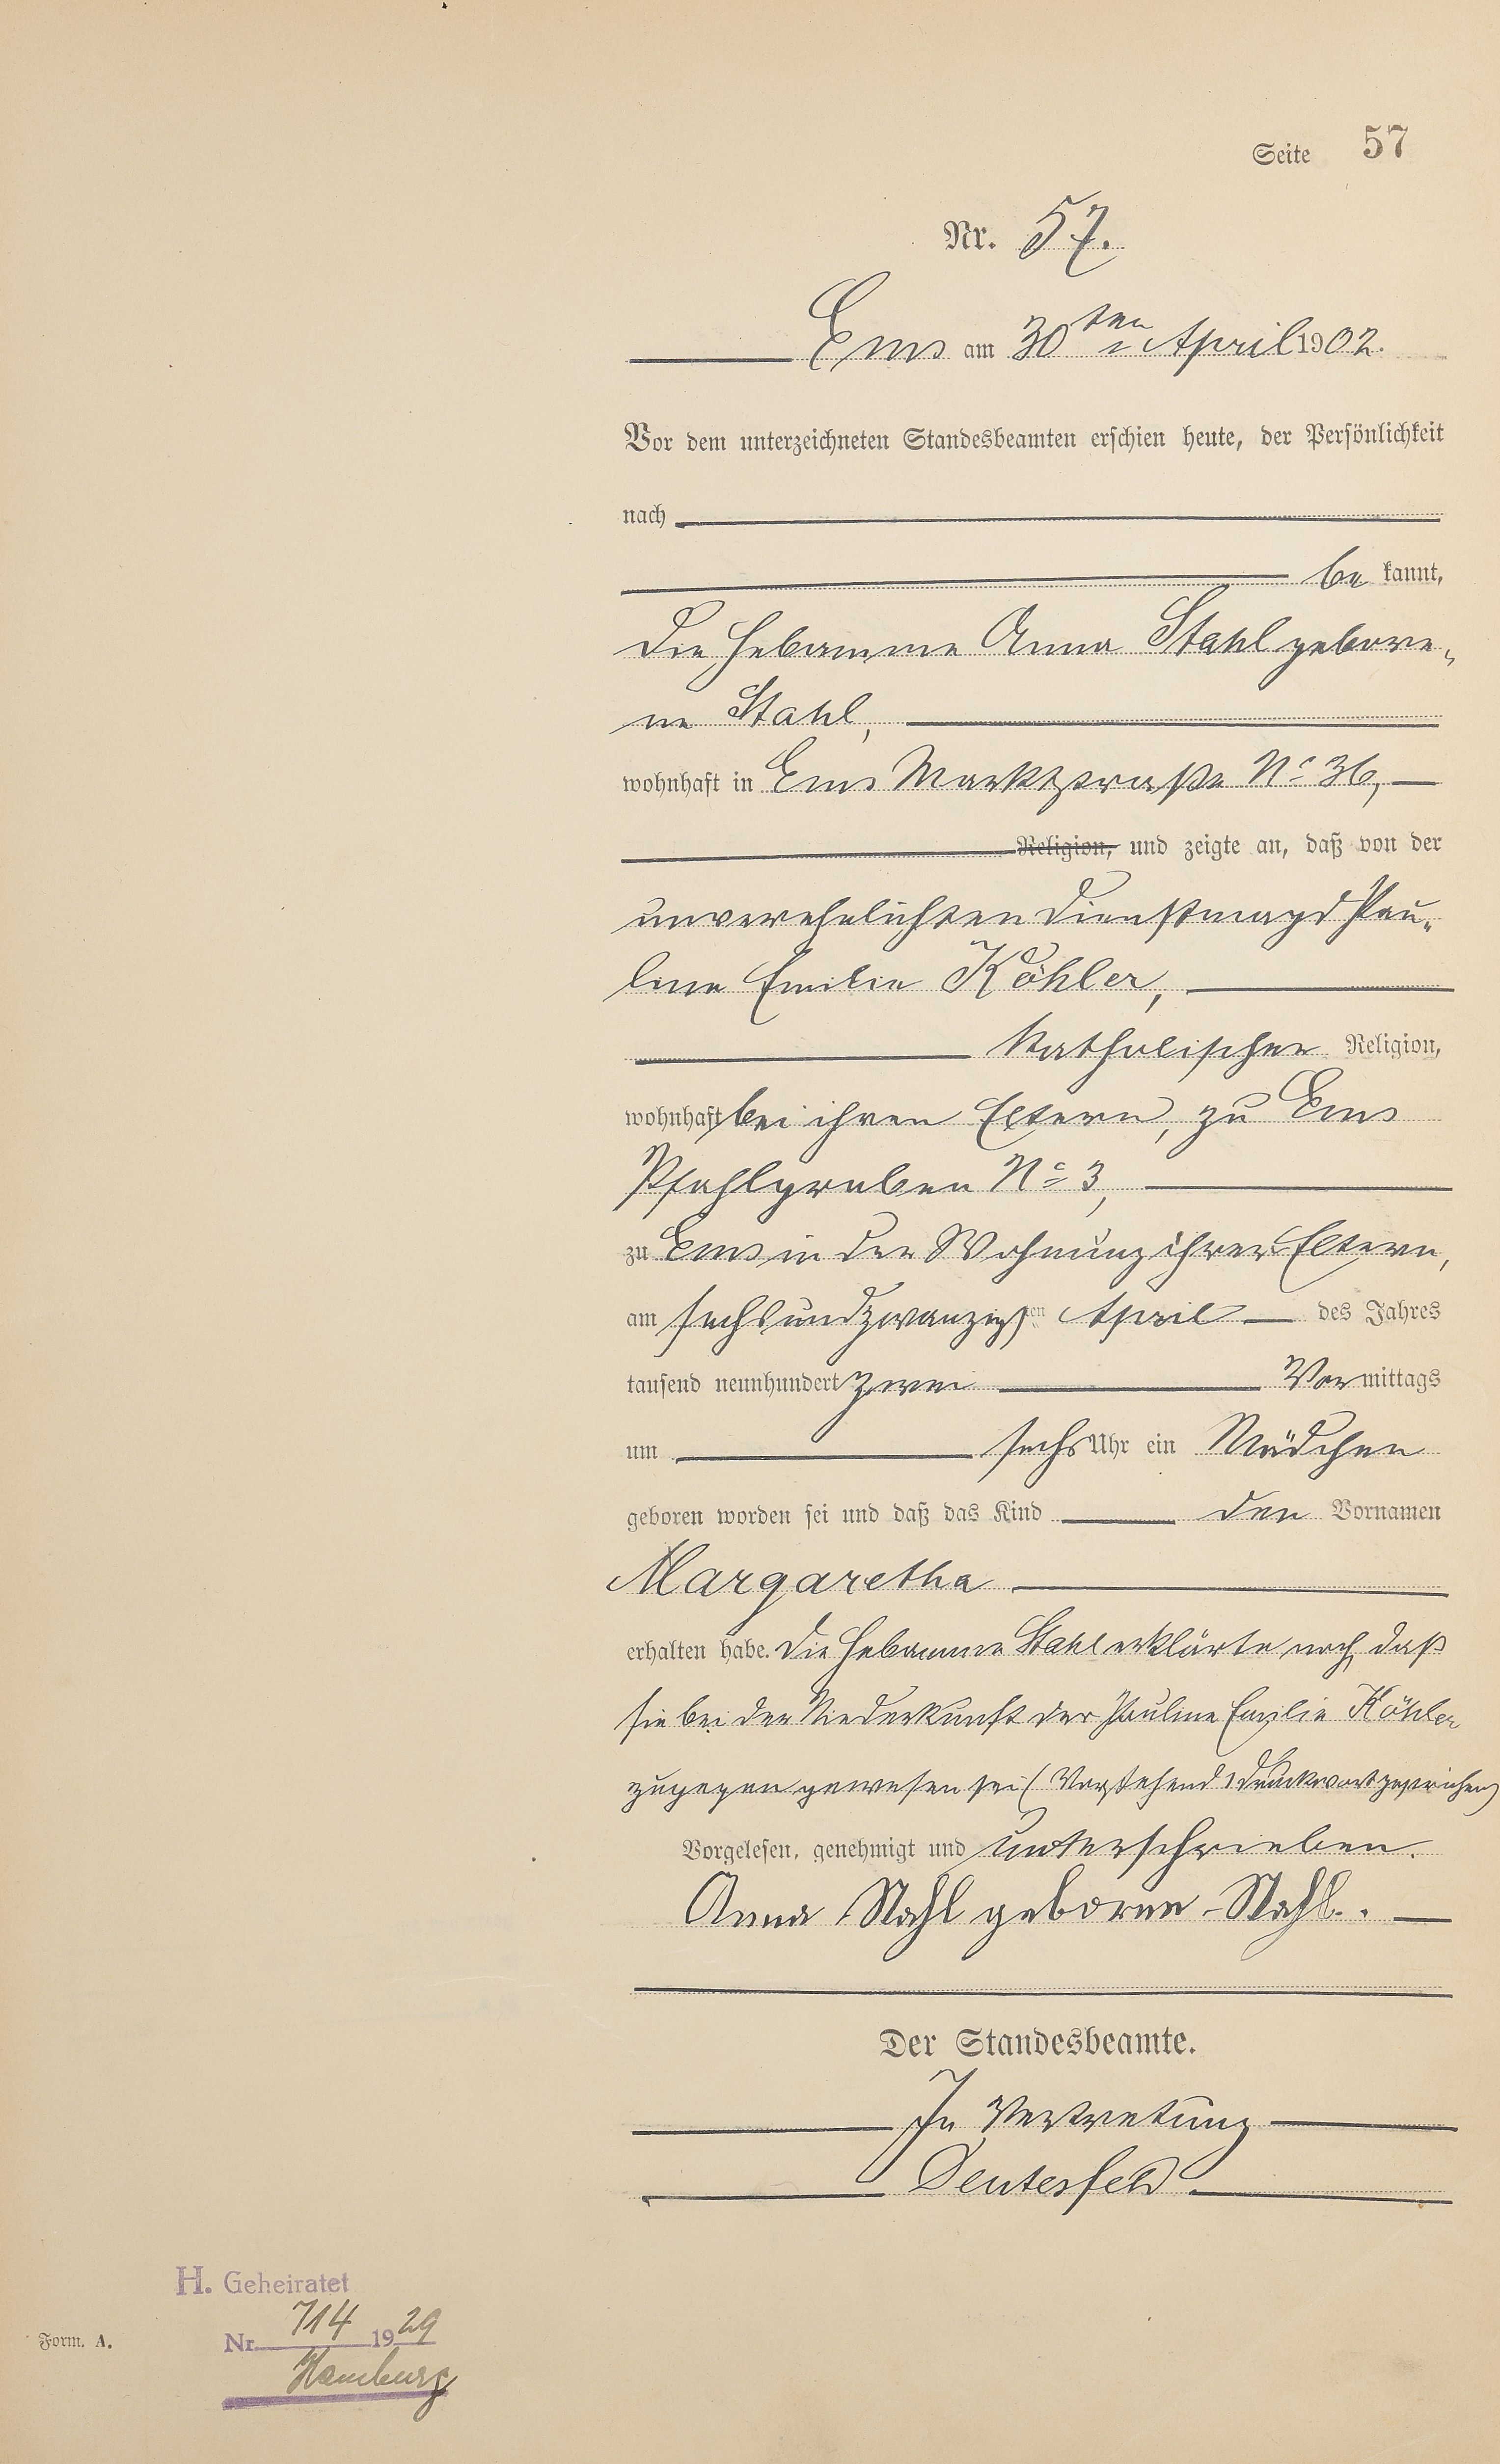 Seite 57
Nr. 57.
Ems am 30ten April 1902.
Vor dem unterzeichneten Standesbeamten erschien heute, der Persönlichkeit
nach
be kannt,
die Hebamme Anna Stahl gebore„
ne Stahl,
wohnhaft in Ems Marktstraße No 36,
Religion, und zeigte an, daß von der
unverehelichten Dienstmagd Pau„
line Emilie Köhler,
katholischer Religion,
wohnhaft bei ihren Eltern, zu Ems
Pfahlgraben No 3,
zu Ems in der Wohnung ihrer Eltern,
am sechsundzwanzigsten April des Jahres
tausend neunhundert zwei Vormittags
um sechs Uhr ein Mädchen
geboren worden sei und daß das Kind den Vornamen
Margaretha
erhalten habe. Die Hebamme Stahl erklärte noch, daß
sie bei der Niederkunft der Pauline Emilie Köhler
zugegen gewesen sei (Vorstehend 1 Druckwort gestrichen)
Vorgelesen, genehmigt und unterschrieben.
Anna Stahl geborne Stahl.
Der Standesbeamte.
In Vertretung
Deutesfeld
H. Geheiratet
Nr. 714 1929
Hamburg
Form. A.